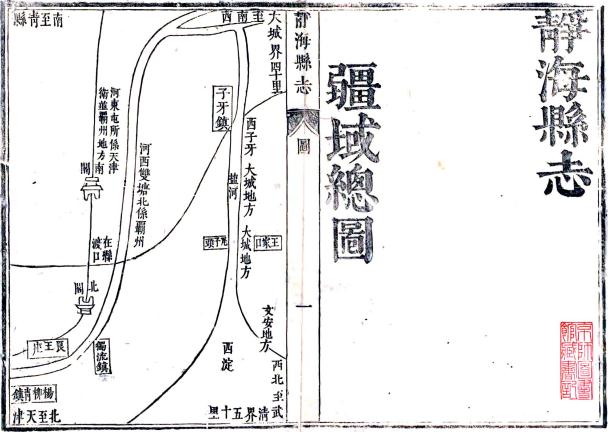 靜海縣志
疆域總圖
靜海縣志
圖
一
西南至
大城界四十里
南至靑縣
子牙鎮
西子牙
大城地方
大城地方
鹽河
王家口
河東屯所係天津
衛並霸州地方南
河西雙塘北係霸州
關
在縣
渡口
北
關
獨流鎮
良王庄
楊柳靑鎮
北至天津
文安地方
西淀
西北至武
淸界五十里